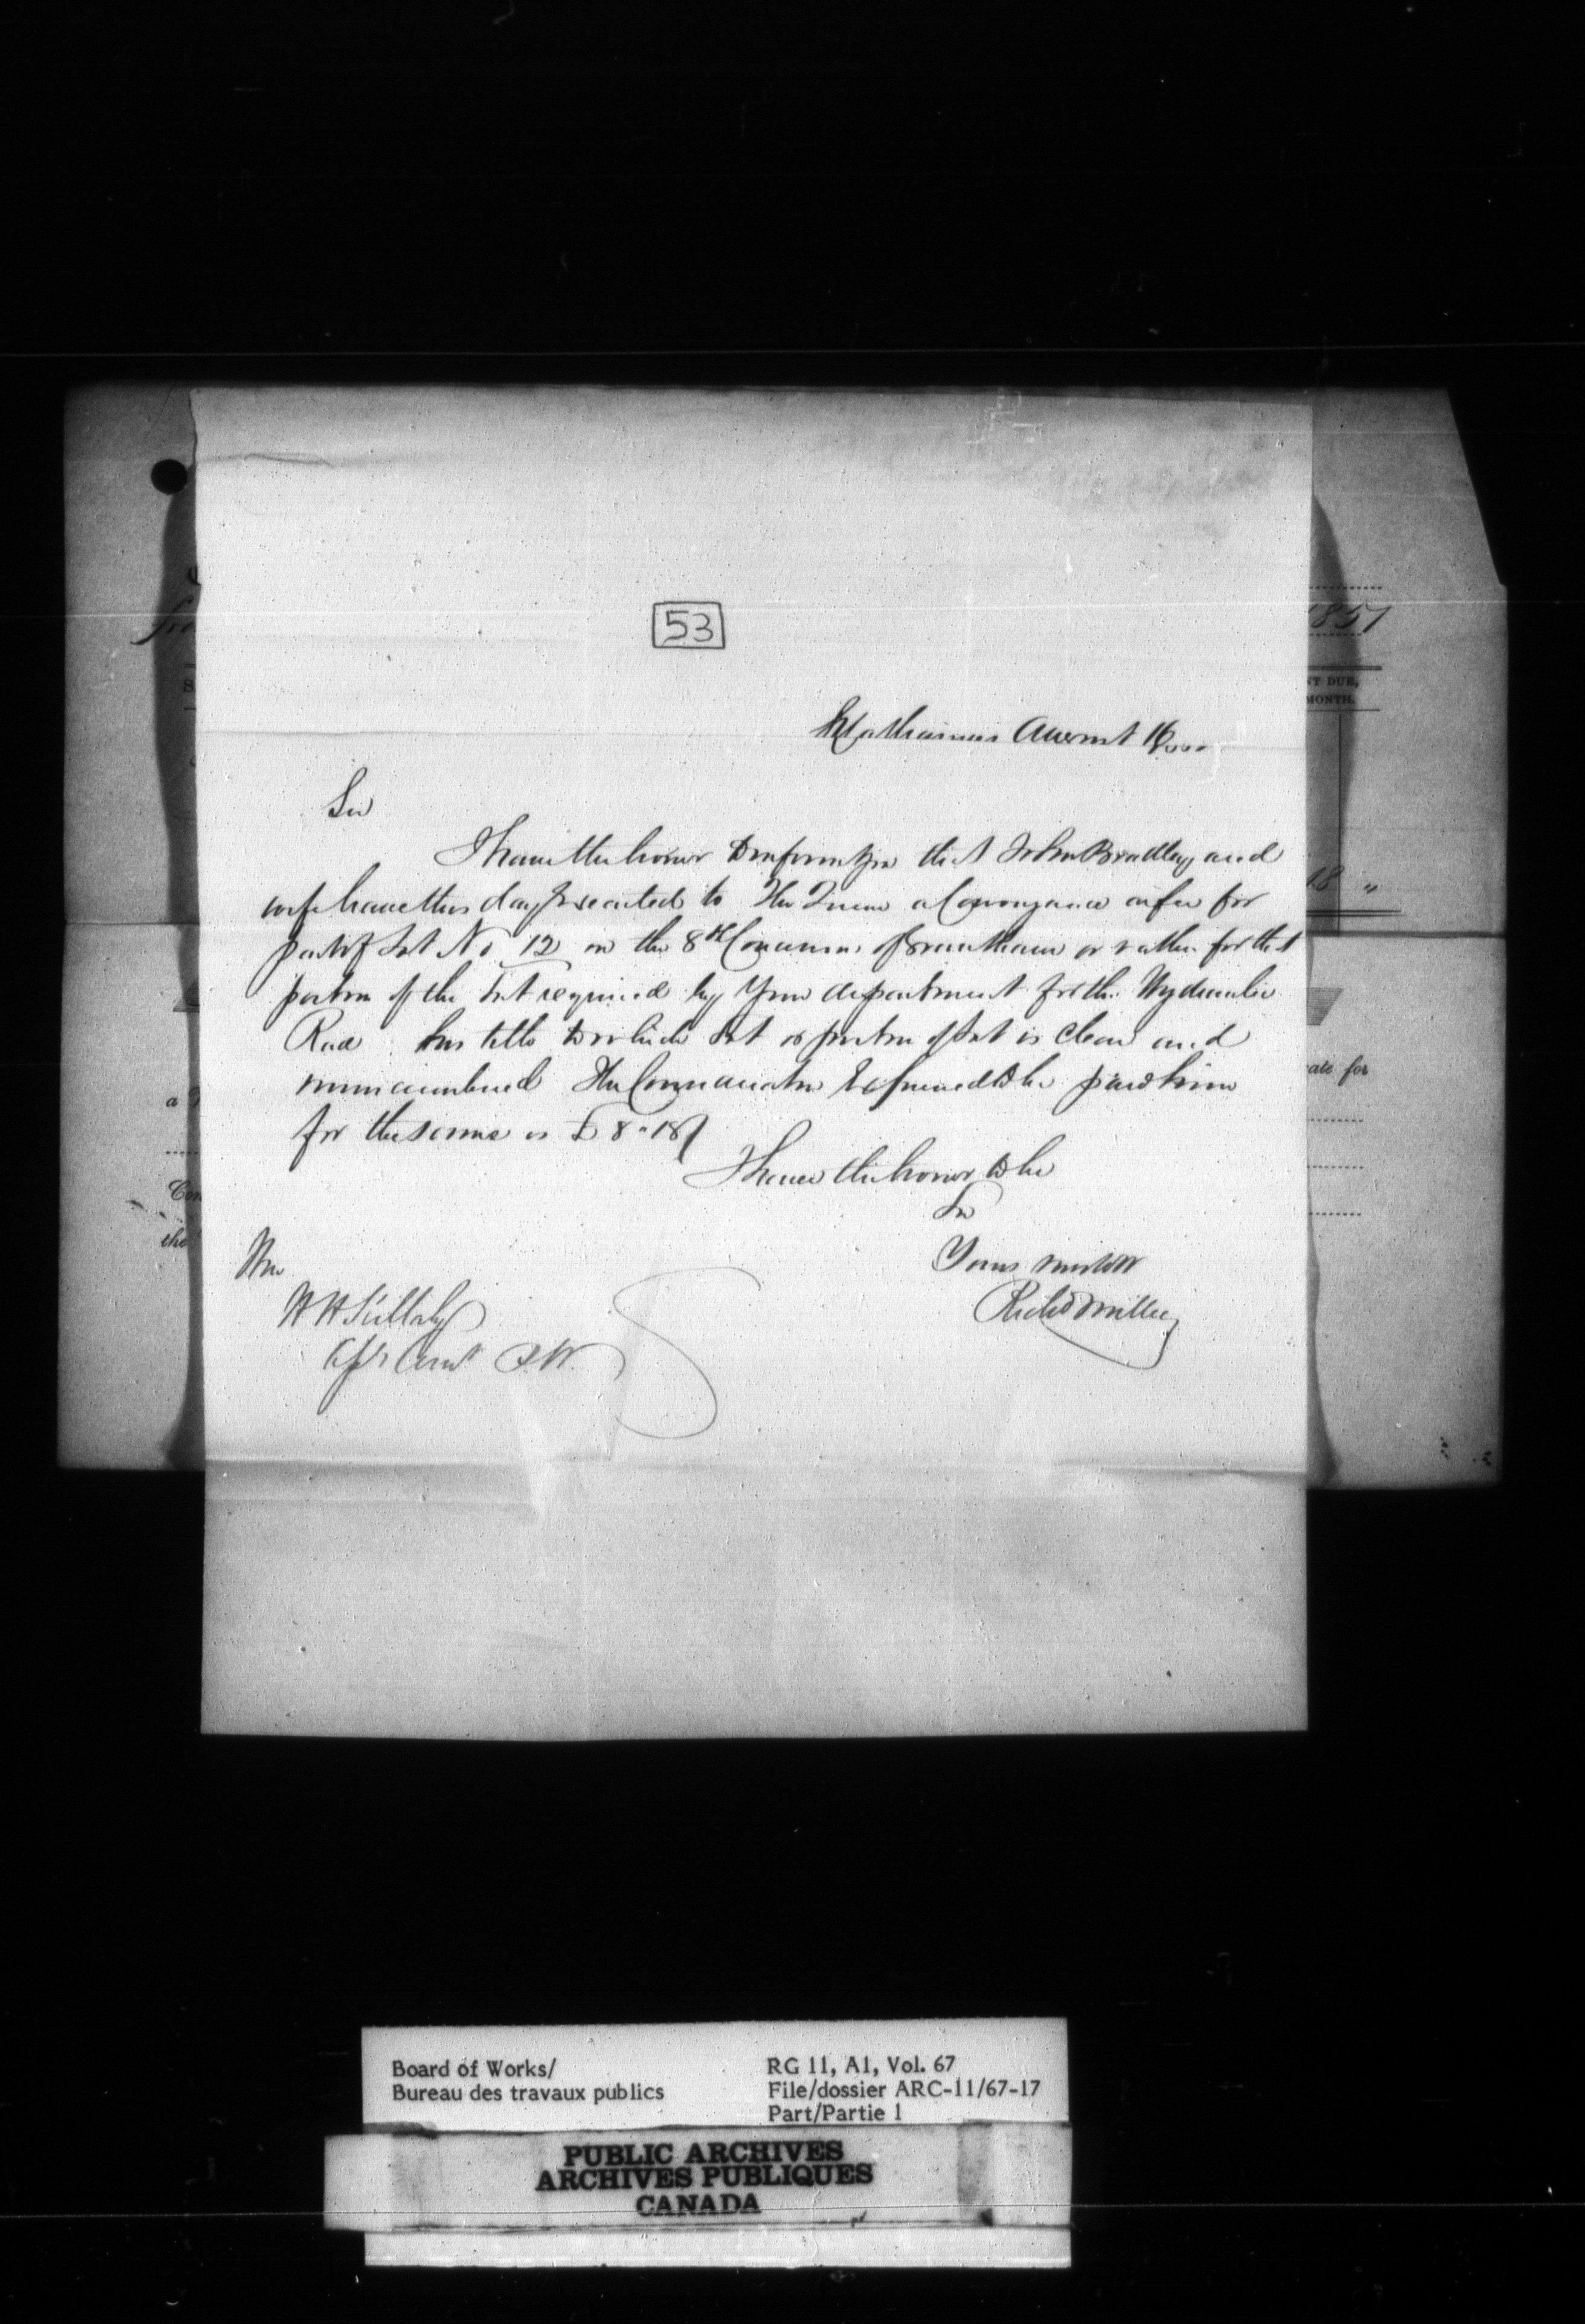 53
St Catharines August 16
Sir
I have the honor to inform you that John Bradley and
wife have this day executed to The Queen a Conveyance in fee for
part of Lot No 12 in the 8th Concession of Grantham or rather for that
portion of the Lot required by Your department for the Hydraulic
Race his title to which Lot or portion of Lot is clear and
unincumbered The Compensation to be paid him
for the same is £8"18/
I have the honor to be
Sir
Yours
Richd Miller
Hon
H H Killaly
Asst Comr P.W.
1851
NT DUE,
MONTH.
18 "
ate for
a
Con
the
Board of Works/
Bureau des travaux publics
RG 11, A1, Vol. 67
File/dossier ARC-11/67-17
Part/Partie 1
PUBLIC ARCHIVES
ARCHIVES PUBLIQUES
CANADA